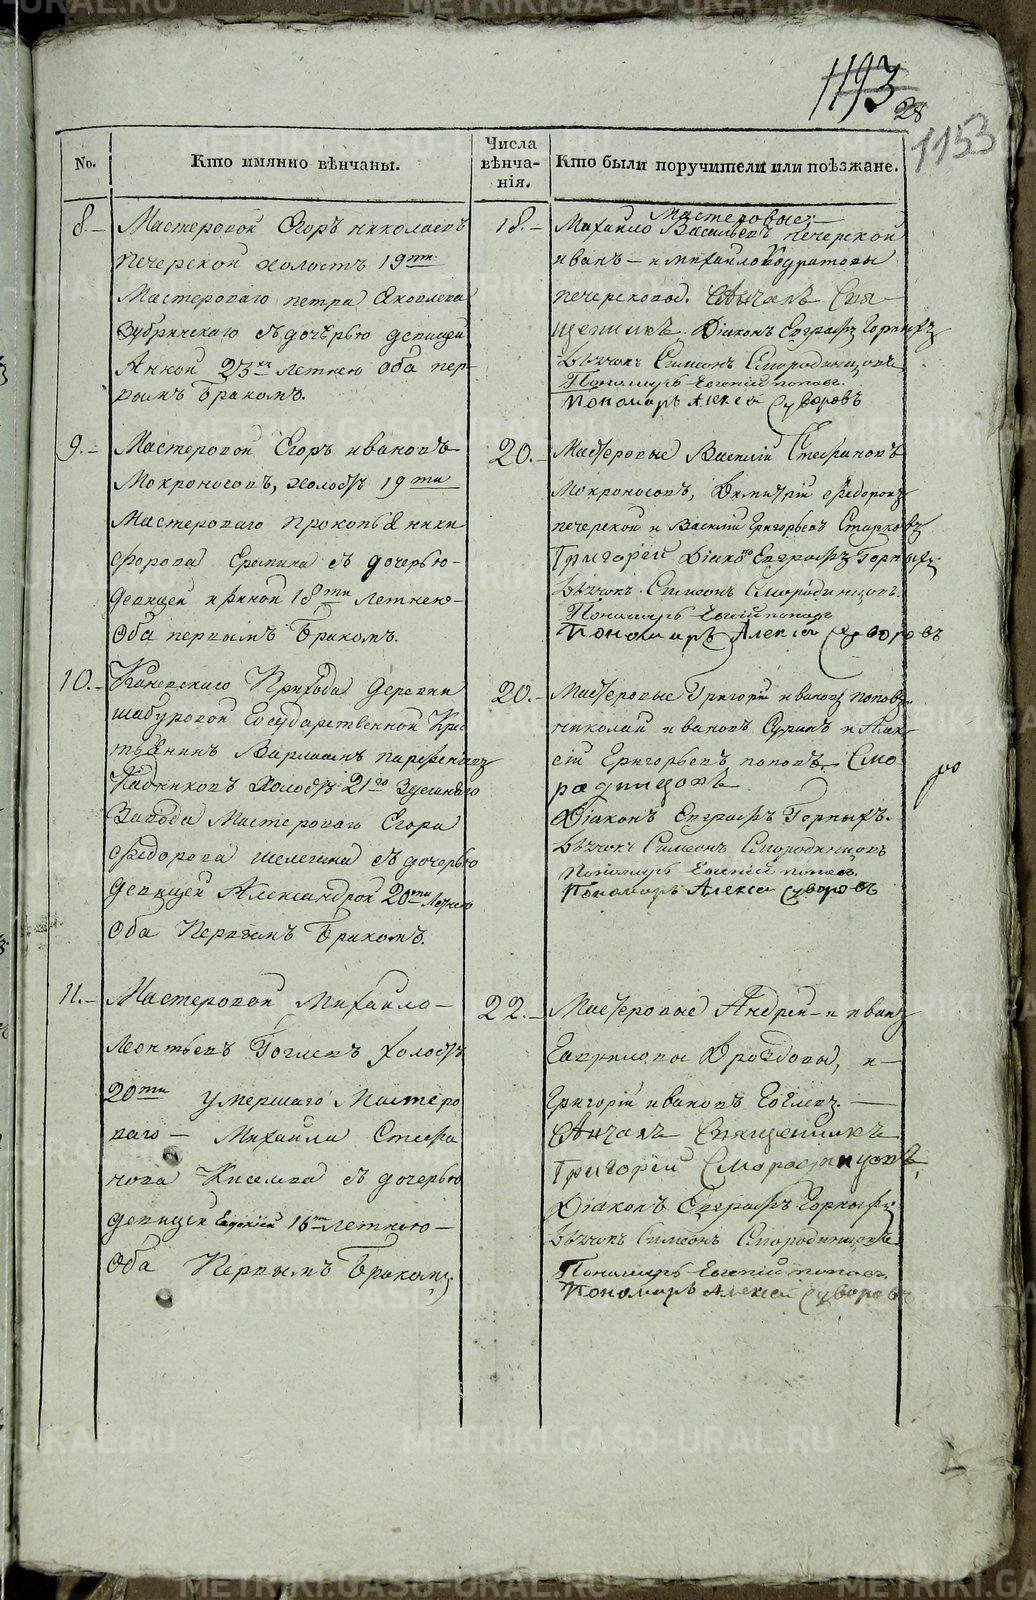 1193
28
1153
No.
Кто имянно вѣнчаны.
Числа
вѣнча-
нія.
Кто были поручители или поѣзжане.
8.-
Мастеровой Егоръ николаевъ
печерской холостъ 19ти
Мастероваго петра Яковлева
Зубринскаго съ дочерью девицей
Анной 23хъ летнею Оба пер-
вымъ Бракомъ.
18.-
Мастеровые:-
Михайло Васильевъ печерской
иванъ - и михайло
печерской. Вѣнчалъ Свя-
щенникъ. Діаконъ Евграфъ Горныхъ
Дьячокъ Симеонъ Смородинцовъ
Пономарь Евгеній попов.
Пономарь Алексей Суворовъ
9.-
Мастеровой Егоръ ивановъ
Мокроносовъ, холостъ 19ти
Мастероваго прокопья ники
форова Еремина съ дочерью-
девицей ириной 18ти летнею-
Оба первымъ Бракомъ.
20.-
Мастеровые Василій Стефановъ
Мокроносовъ, Димитрій Федоровъ
печерской и Василий Григорьевъ Старковъ
Григорей Діаконъ Евграфъ Горныхъ.
Дьячокъ Симеонъ Смородинцовъ.
Пономарь Евгеній поповъ
Пономарь Алексей Суворовъ
10.-
Каневскаго Прихода деревни
шабуровой Государственной Крес
тьянинъ Варламъ парфеновъ
холостъ 21го
Завода Мастероваго Егора
федорова шелегина съ дочерью
девицей Александрой 20ти Летнею
Оба Первымъ Бракомъ.
20.-
Мастеровые Григорій ивановъ поповъ
николай ивановъ Суринъ и Алек-
сій Григорьевъ поповъ Смо
родинцовъ
Діаконъ Евграфъ Горныхъ.
Дьячокъ Симеонъ Смородинцовъ
Пономарь Евгеній поповъ.
Пономарь Алексей Суворовъ
11.-
Мастеровой Михайло-
Леонтьевъ Гоглевъ холостъ
20ти умершаго Мастеро
ваго - Михаила Стефа
нова Киселева съ дочерью
девицей Евдокией 16ти летнею-
Оба Первымъ Бракомъ.
22.-
Мастеровые Андрей - и иванъ
Гавриловы Дроздовы, и-
Григорій ивановъ Гоглевъ.
Вѣнчалъ Священникъ
Григорей Смородинцовъ,
Діаконъ Евграфъ Горныхъ
Дьячокъ Симеонъ Смородинцовъ
Пономарь Евгеній поповъ
Пономарь Алексей Суворовъ
METRIKI.GASO-URAL.RU